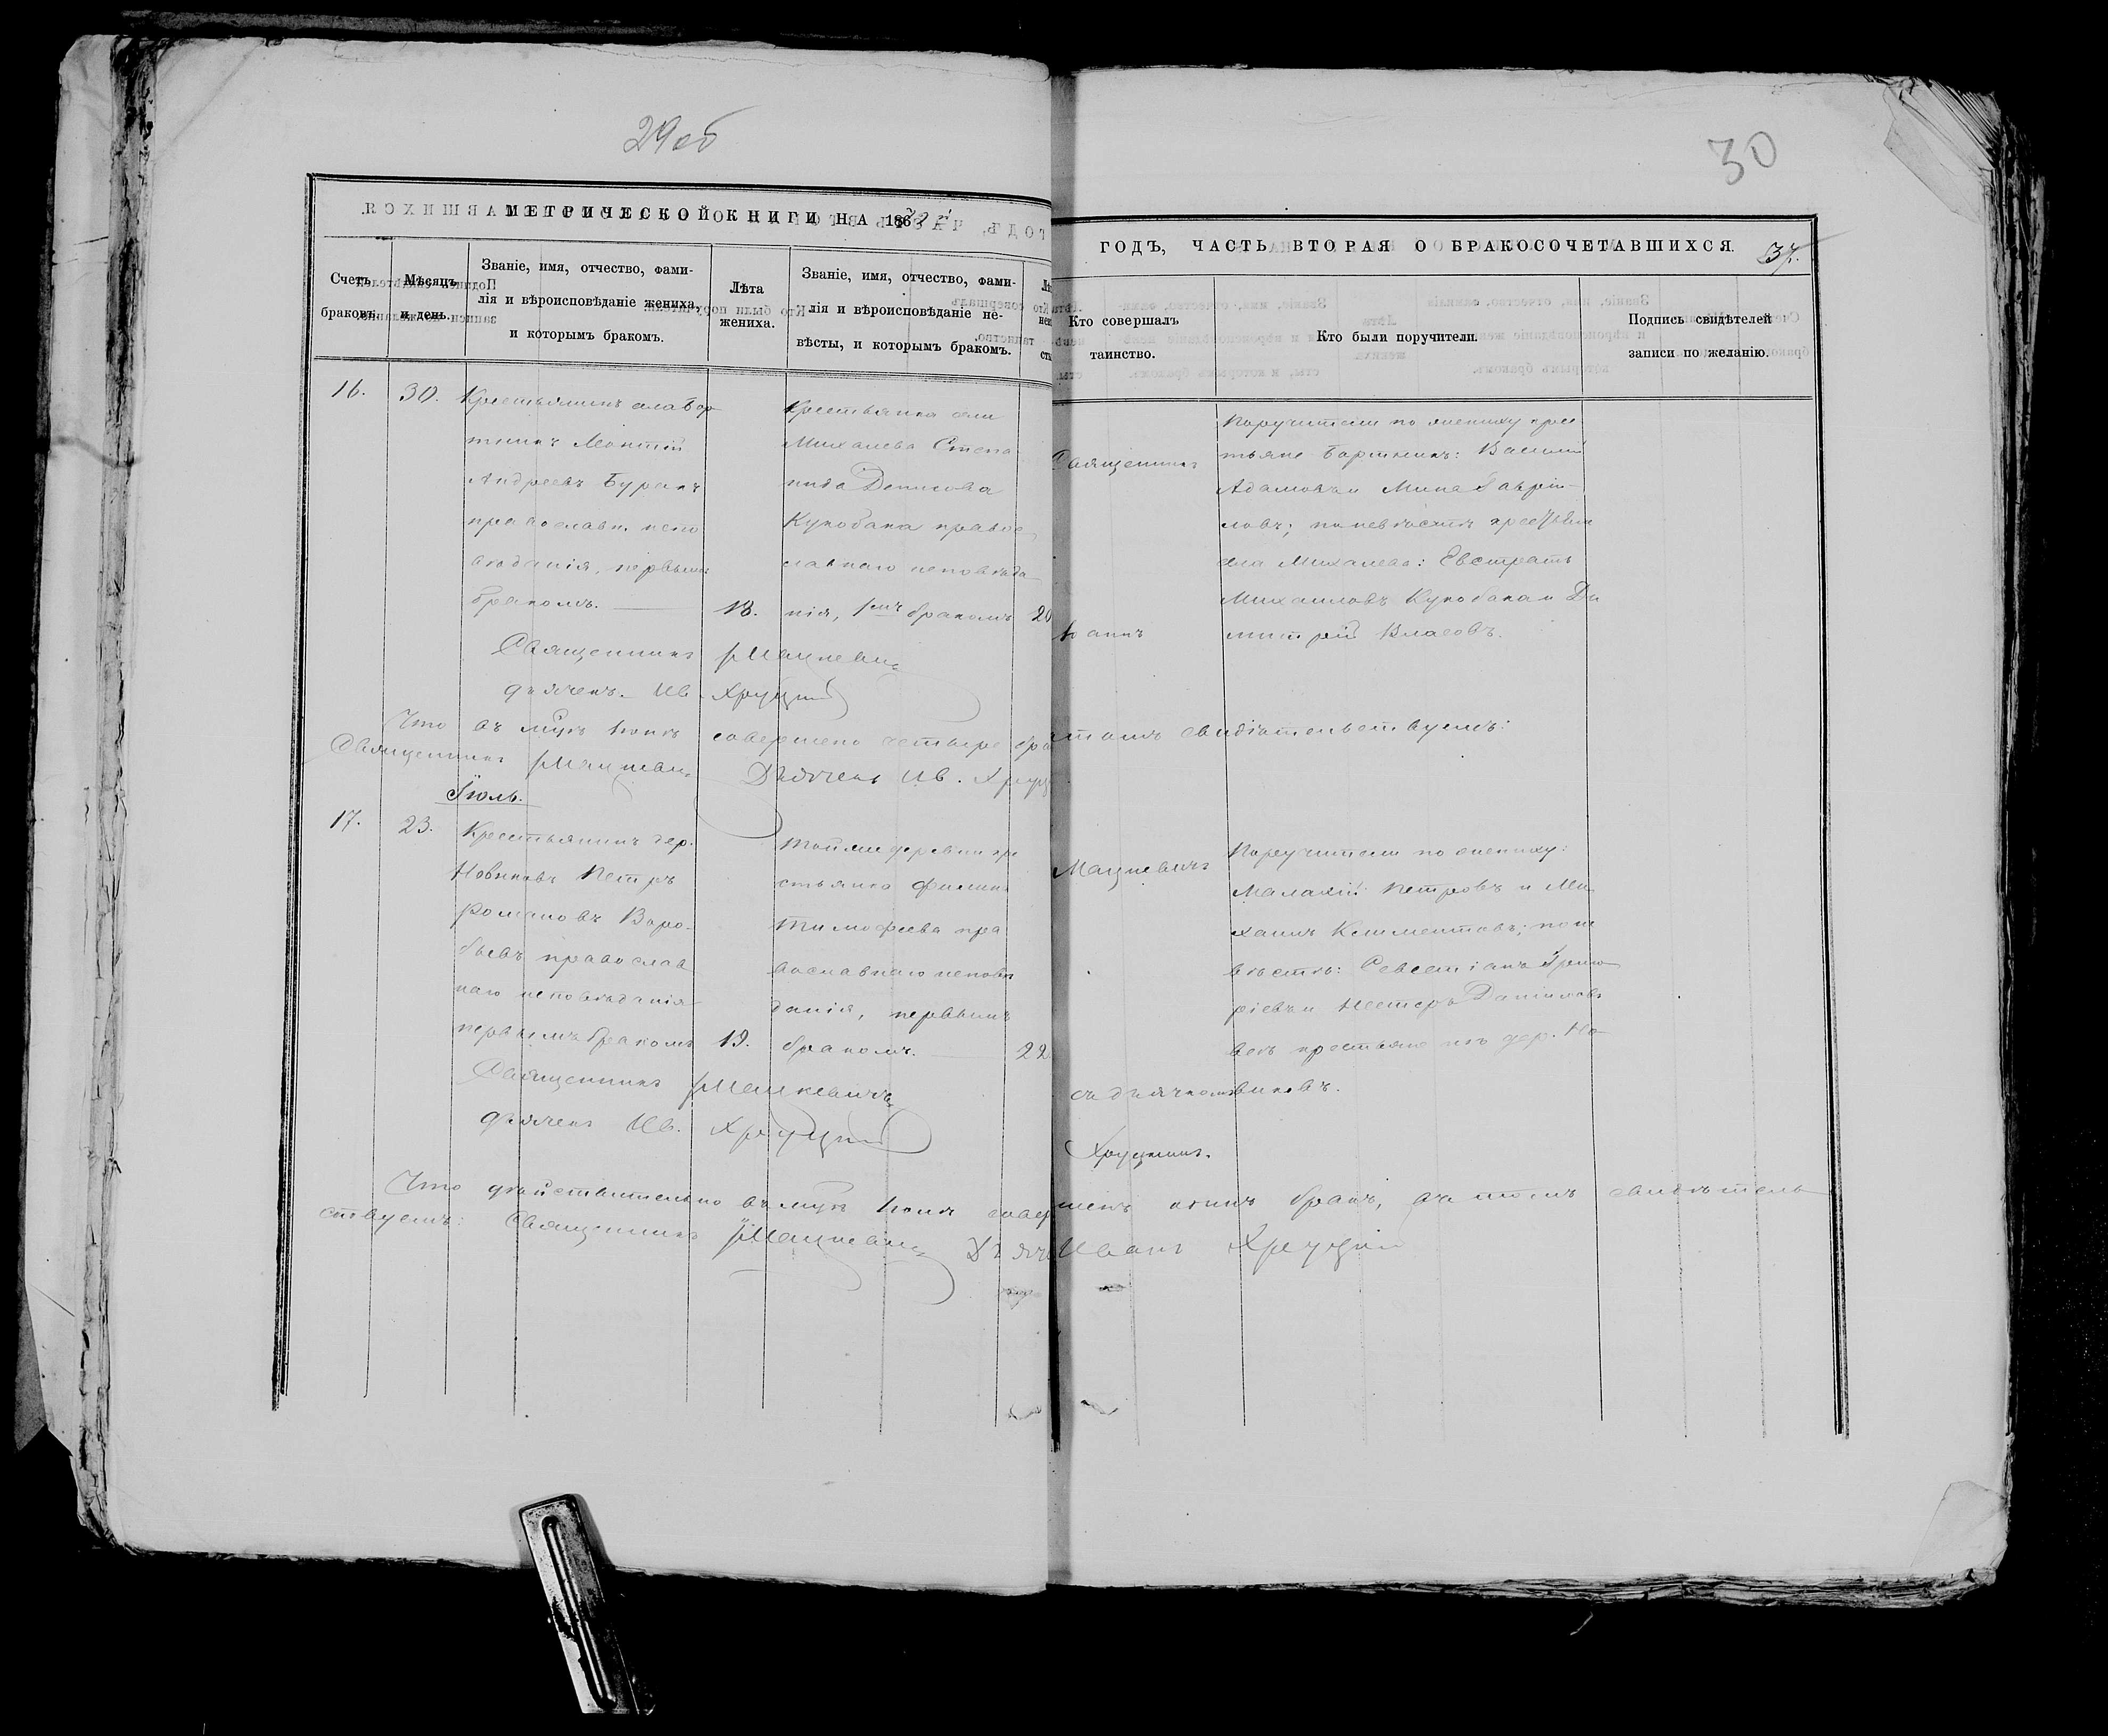 29об
30
МЕТРИЧЕСКОЙ КНИГИ НА 186
ГОДЪ, ЧАСТЬ ВТОРАЯ О БРАКОСОЧЕТАВШИХСЯ.
37.
Счетъ
браковъ.
Мѣсяцъ
и день.
Званіе, имя, отчество, фами-
лія и вѣроисповѣданіе жениха,
и которымъ бракомъ.
Лѣта
жениха.
Званіе, имя, отчество, фами-
лія и вѣроисповѣданіе не-
вѣсты, и которымъ бракомъ.
Кто совершалъ
таинство.
Кто были поручители.
Подпись свидѣтелей
записи по желанію.
16.
30.
Крестьянинъ села Бор
тникъ
Андреевъ Буракъ
православн. испо
вѣданія, первымъ
бракомъ.
18.
Крестьянка села
Михалева Степа
нида Денисова
Кукобака право
славнаго исповѣда
нія, 1мъ бракомъ
20
Священникъ
Іоаннъ
Поручители по жениху крес
тьяне Бортникъ: Василій
Адамовъ и Мина Гаврі
ловъ; по невѣстѣ крестьяне
села Михалева: Евстратъ
Михаиловъ Кукобака и Ди
митрій Власовъ.
Священникъ Мацкевичъ
дьячекъ Ив. Хруцкій
Что въ мцѣ Іюнѣ совершено четыре бра
томъ свидѣтельствуемъ:
Священникъ Мацкевичъ
Дьячекъ Ив. Хруц
Іюль.
17.
23.
Крестьянинъ дер.
Новиковъ Петръ
Романовъ Воро
бьевъ православ
наго исповѣданія
первымъ бракомъ
19.
Той же деревни кре
стьянка
Тимофеева пра
вославнаго исповѣ
данія, первымъ
бракомъ.
22
Мацкевичъ
съ дьячкомъ
Хруцкимъ.
Поручители по жениху:
Малахій Петровъ и Ми
хаилъ Климентовъ; по не
вѣстѣ: Севастіанъ Григо
ріевъ и Несторъ Даниловъ
всѣ крестьяне изъ дер. Но
виковъ.
Священникъ Мацкевичъ
дьячекъ Ив. Хруцкій
Что дѣйствительно въ мцѣ Іюлѣ совер
шенъ одинъ бракъ, въ томъ свидѣтель
ствуемъ: Священникъ Мацкевичъ Дьяче
Иванъ Хруцкій